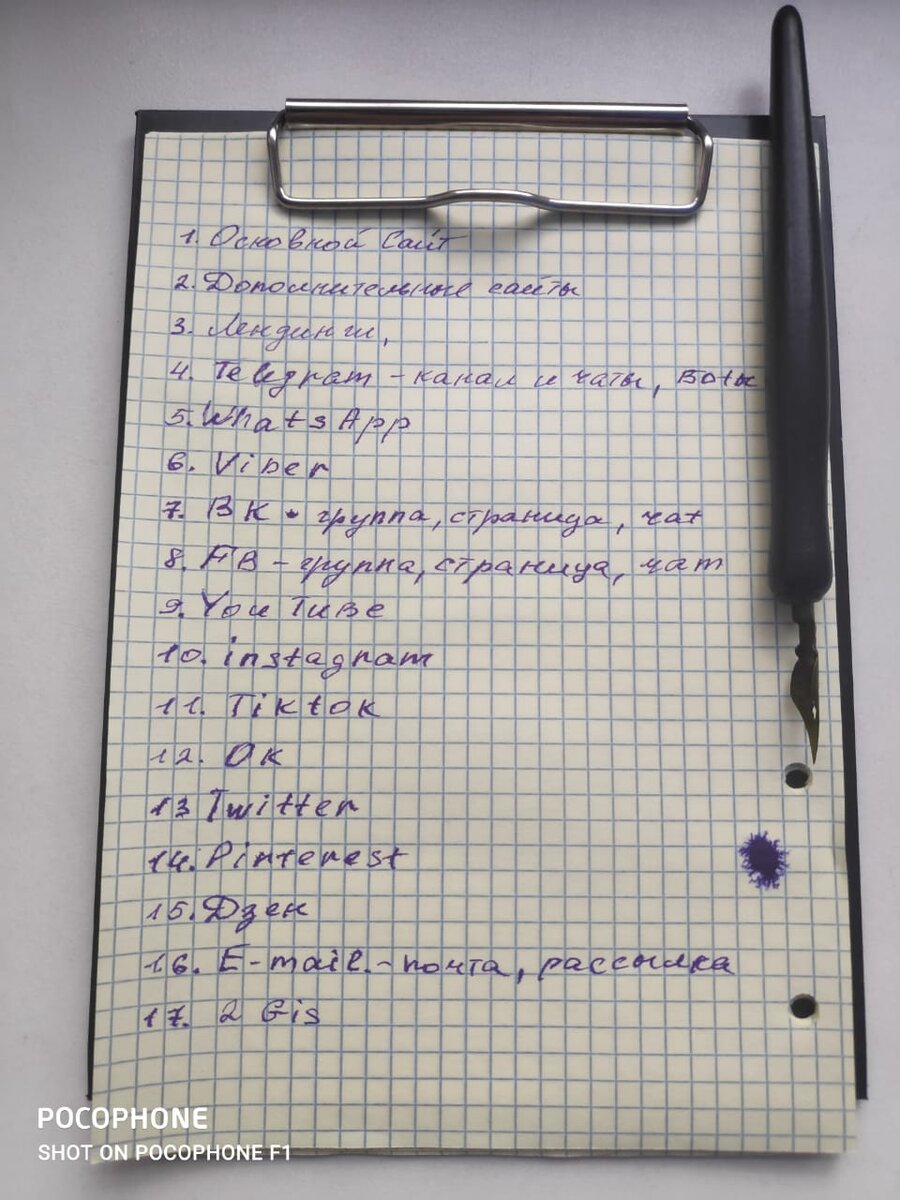 1. Основной Сайт
2. Дополнительные сайты
3. Лендинги,
4. Telegram - канал и чаты, Боты
5. WhatsApp
6. Viber
7. ВК - группа, страница, чат
8. FB - группа, страница, чат
9. You TuBe
10. instagram
11. Tiktok
12. ОК
13 Twitter
14. Pinterest
15. Дзен
16. E-mail. - почта, рассылка
17. 2 Gis
POCOPHONE
SHOT ON POCOPHONE F1